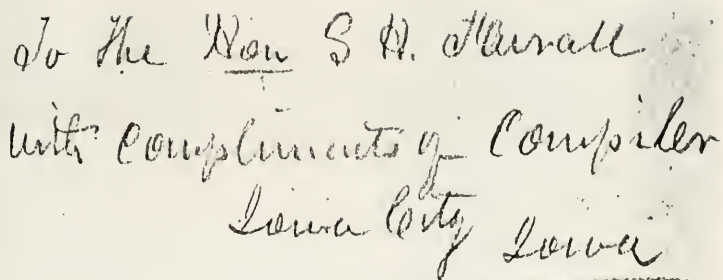 To The Hon S H. Fairall
with Compliments of Compiler
Iowa City Iowa